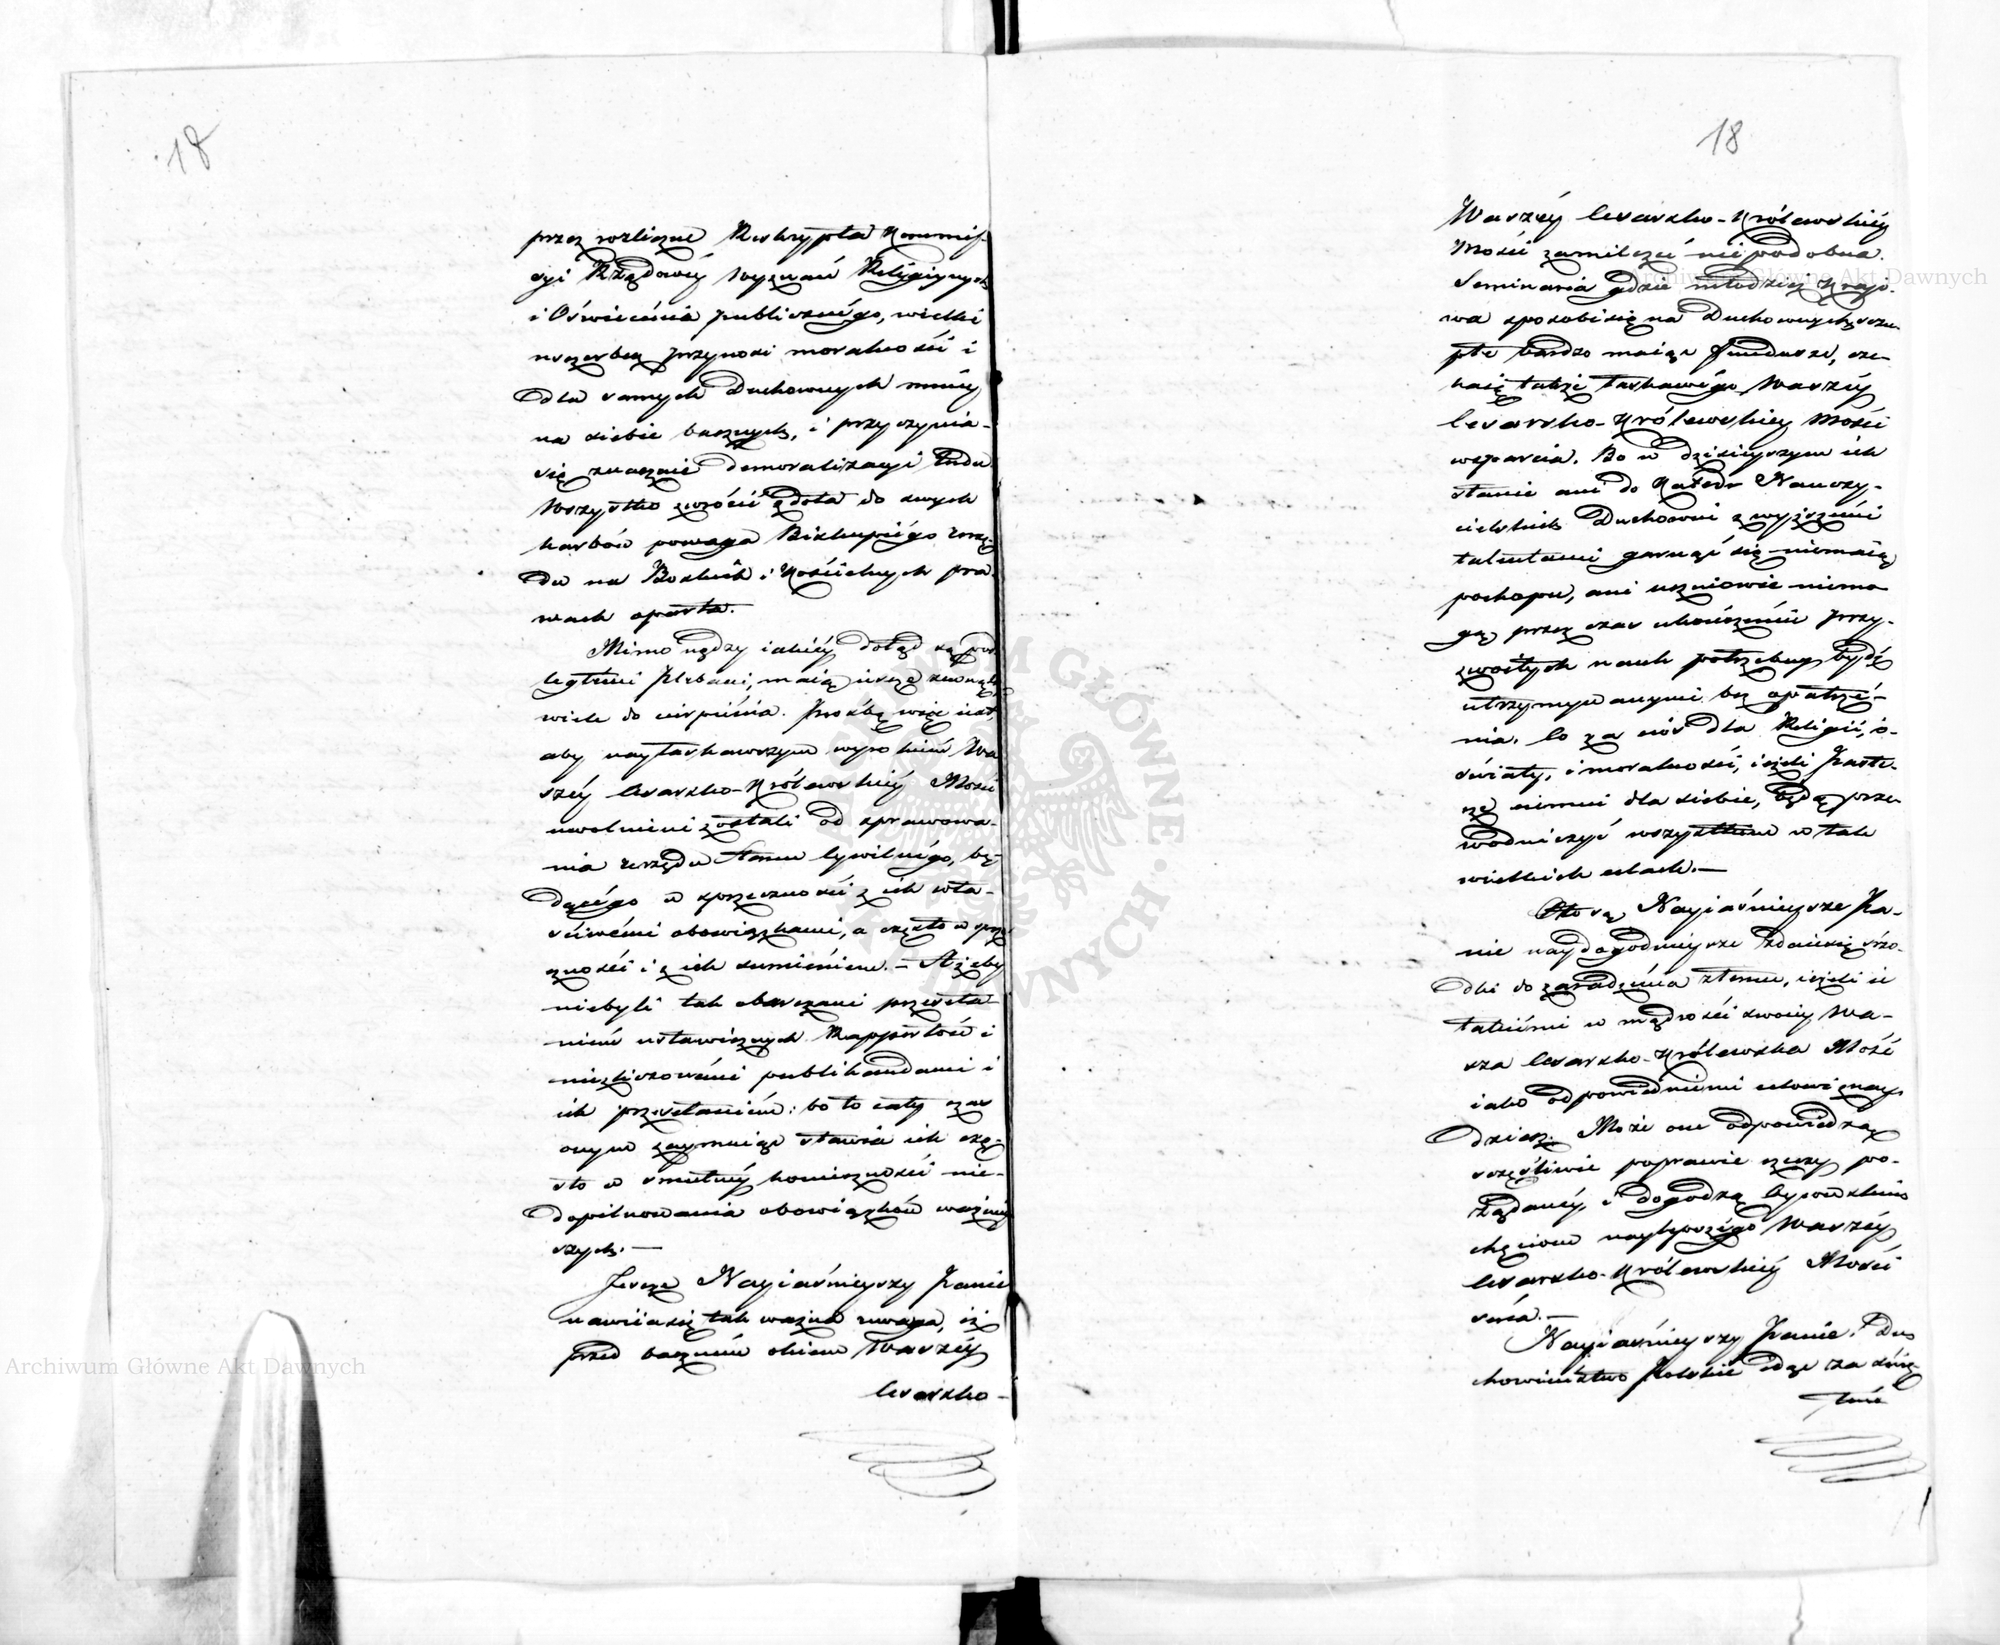 18
przez rozliczne Reskrypta Kommis-
syi Rządowéy Wyznań Religiynych
i Oświecénia publicznégo, wielki
uszczerbek przynosi moralności i
dla samych Duchownych mniéy
na siebie bacznych, i przyczynia
się znacznie demoralizacyi Ludu.
Wszystko zwrócić zdoła do swych
karbów powaga Biskupiégo urzę-
du na Boskich i Kościelnych pra-
wach oparta.
Mimo nędzy iakiéy dotąd są pod
ległemi Plebani, maią ieszcze zewnątrz
wiele do cierpiénia. Prośbą więc iest,
aby naytaskawszym wyrokiém Wa
széy Cesarsko-Królewskiéy Mości
uwolnieni zostali od sprawowa-
nia urzędu Stanu Cywilnégo, bę-
dącégo w sprzeczności z ich wła-
ściwémi obowiązkami, a często w sprze
czności i z ich sumiéniem. - Ażeby
niebyli tak obarczani przesyła-
niém ustawicznych Rapportów i
niezliczonémi publikandami i
ich przesłaniém: bo to cały czas
onym zaymuiąc stawia ich czę-
sto w smutnéy konieczności nie-
dopilnowania obowiązków ważniéy
szych. —
Jeszcze Nayiaśnieyszy Panie
nawiia się tak ważna uwaga, iż
przed baczném okiem Waszéy
Cesarsko-
18
Waszéy Cesarsko-Królewskiéy
Mości zamilczeć nie podobna.
Seminaria gdzie młodzież krajo-
wa sposobi się na Duchownych, szczu-
płe bardzo maiąc fundusze, cze-
kaią także łaskawégo Waszéy
Cesarsko-Królewskiey Mości
wsparcia. Bo w dzisieyszym ich
stanie ani do Katedr Nauczy-
cielskich Duchowni z wyższémi
talentami garnąć się niemaią
pochopu, ani uczniowie niemo
gą przez czas ukończénia przy-
zwoitych nauk potrzebnych bydź
utrzymywanymi bez opatrzé-
nia. Co za cios dla Religii, o-
światy, i moralności, ieżeli Paste-
rze ciemni dla siebie, będą prze-
wodniczyć wszystkim w tak
wielkich celach. —
Oto są Nayiaśnieysze Pa-
nie naydogodnieysze zdaie się śrzo-
dki do zaradzénia złemu, ieżeli ie
takiémi w mądrości swoiey Wa-
sza Cesarsko-Królewska Mość
iako odpowiedniemi celowi znay-
dziesz. Może one odpowiedzą
szczęśliwie poprawie rzeczy po-
żądanéy, i dogodzą
chęciom naylepszégo Waszéy
Cesarsko-Królewskiéy Mości
serca. —
Nayiaśnieyszy Panie! Du
chowieństwo Polskie idąc za świę-